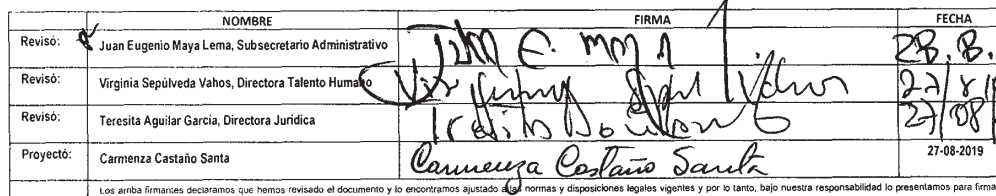 NOMBRE FIRMA FECHA
Revisó: Juan Eugenio Maya Lema, Subsecretario Administrativo Juan E. Maya 28.8.
Revisó: Virginia Sepúlveda Vahos, Directora Talento Humano Virginia Sepúlveda Vahos 27/8/
Revisó: Teresita Aguilar García, Directora Jurídica 27/08/
Proyectó: Carmenza Castaño Santa Carmenza Castaño Santa 27-08-2019
Los arriba firmantes declaramos que hemos revisado el documento y lo encontramos ajustado a las normas y disposiciones legales vigentes y por lo tanto, bajo nuestra responsabilidad lo presentamos para firm